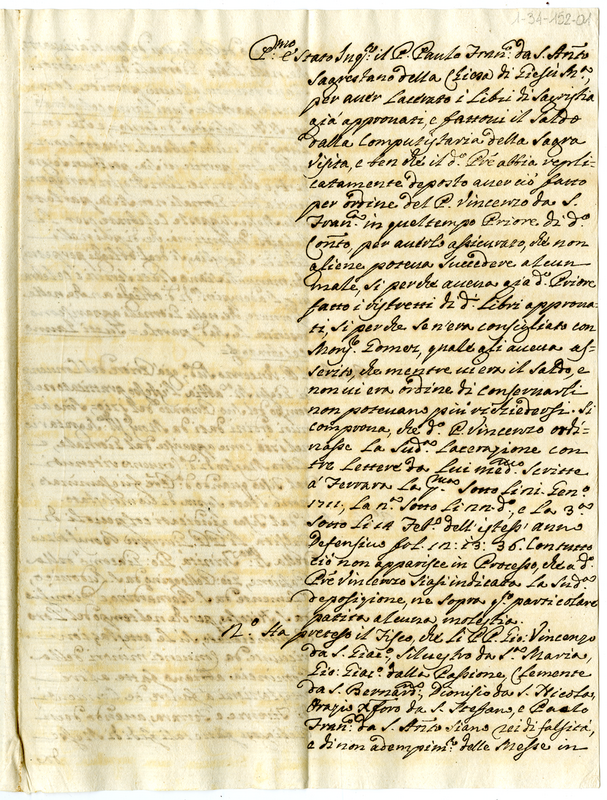 1-34-452-01
P.mo è stato Inq.to il P. Paulo Fran.co da S. Ant.o
Sagrestano della Chiesa di Giesù M.a
per auer lacerato i Libri di Sagristia
già approuati, e fattoui il saldo
dalla Computistaria della Sagra
Visita, e ben che il d.o Pre abbia repli-
catamente deposto auer ciò fatto
per ordine del P. Vincenzo da S.
Fran.co in quel tempo Priore di d.o
Conu.to, per auerlo assicurato, che non
aliene poteua succedere alcun
male, si perche aueua già d.o Priore
fatto i ristretti di d.i Libri approua-
ti, si perche se n'era consigliato con
Mons.r Gomez, quale gli aueua as-
serito, che mentre ui era il saldo, e
non ui era ordine di conseruarli
non poteuano più richiedersi. Si
comproua, che d.o P. Vincenzo ordi-
nasse la sud.a lacerazione con
tre Lettere da lui med.mo scritte
à Ferrara la p.ma sotto li ni. Gen.o
1711, la n.a sotto li nn d.o, e la 3.a
sotto li 14 Feb.o dell'istess' anno
Defensiuo fol. 12: 13: 36. Contutto
ciò non apparisce in Processo, che a d.o
Pre Vincenzo siasi indicata la sud.a
deposizione, ne sopra q.o particolare
patita alcuna molestia.
n.o Ha preteso il Fisco, che li PP. Gio: Vincenzo
da S. Giac.o, Siluestro da S.ta Maria,
Gio: Giac.o dalla Passione, Clemente
da S. Bernard.o, Dionisio da S. Nicola,
Orazio Xforo da S. Stefano, e Paolo
Fran.co da S. Ant.o siano rei di falsità,
e di non adempim.to delle Messe in